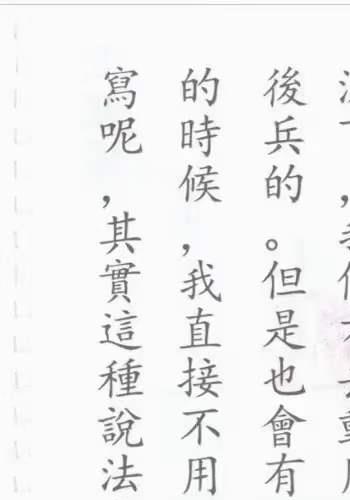 後兵的。但是也會有
的時候，我直接不用
寫呢，其實這種說法